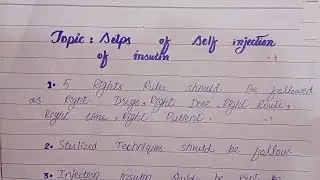 Topic : Selps of Self injection
of insulin
1. 5 Rights Rules should be followed
as Right Drugs, Right Dose, Right Route,
Right time, Right Patient.
2. Sterlized Techniques should be follow.
3. Injection Insulin should be kept